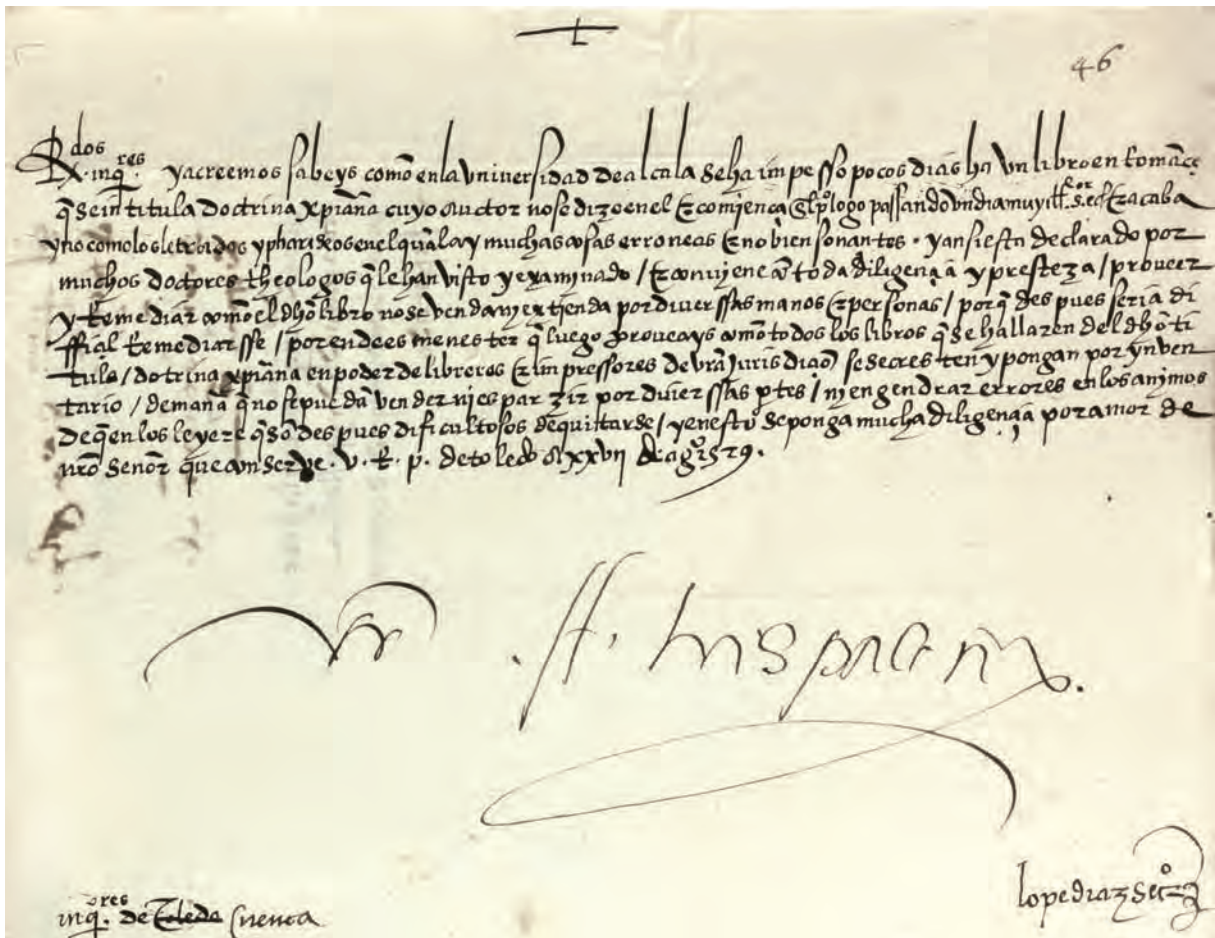 46
R.dos inq.res ya creemos sabeys como en la universidad de alcala se ha impesso pocos dias ha un libro en Romāçe
q̄ se intitula doctrina xp̄iāna cuyo auctor no se dizo en el & comiença el p̄logo passando un dia muy ill.e s.or & acaba
y no como los letrados y phariseos en el qual ay muchas cosas erroneas & no bien sonantes. y ansi esta declarado por
muchos doctores theologos q̄ le han visto y examinado / & conviene cō toda diligençia y presteza / proveer
y Remediar como el dho libro no se venda ny extienda por diverssas manos & personas / porq̄ despues seria di
fficil Remediarsse / por ende es menester q̄ luego proveays como todos los libros q̄ se hallaren del dho ti
tulo / dotrina xp̄iāna en poder de libreros & impressores de vrā Juris diçiō se secresten y pongan por ynven
tario / de manā q̄ no se puedā vender ni esparzir por diverssas ptes / ny engendrar errores en los anymos
de q̄en los leyere q̄ sō despues dificultosos de quitarse / y en esto se ponga mucha diligençia por amor de
nrō senor que conserve. v. R. p. de toledo a xxvii de ag.o 529.
A. hispalēn.
lope diaz sec.o
inq.res de Toledo Cuenca